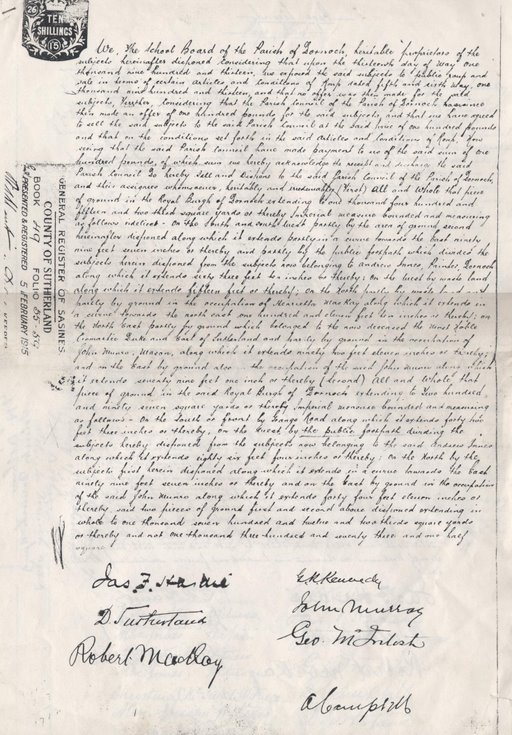 26
TEN
SHILLINGS
15
We, The School Board of the Parish of Dornoch, heritable proprietors of the
subjects hereinafter disponed Considering that upon the thirteenth day of May One
thousand nine hundred and thirteen, we exposed the said subjects to public roup and
sale in terms of certain Articles and Conditions of Roup dated fifth and sixth May, One
thousand nine hundred and thirteen, and that no offer was then made for the said
subjects, Further, Considering that the Parish Council of the Parish of Dornoch
then made an offer of one hundred pounds for the said subjects, and that we have agreed
to sell the said subjects to the said Parish Council at the said price of one hundred pounds
and that on the conditions set forth in the said Articles and Conditions of Roup, Now
seeing that the said Parish Council have made payment to us of the said sum of one
hundred pounds, of which sum we hereby acknowledge the receipt and discharge the said
Parish Council Do hereby Sell and Dispone to the said Parish Council of the Parish of Dornoch
and their assignees whomsoever, heritably and irredeemably (First) All and Whole that piece
of ground in the Royal Burgh of Dornoch extending to One thousand four hundred and
fifteen and two third square yards or thereby Imperial measure bounded and measuring
as follows videlicet:- On the South and South west partly by the area of ground second
hereinafter disponed along which it extends partly in a curve towards the East ninety
nine feet seven inches or thereby, and partly by the public footpath which divides the
subjects herein disponed from the subjects now belonging to Andrew Innes, Painter, Dornoch
along which it extends sixty three feet ten inches or thereby; on the West by waste land
along which it extends fifteen feet or thereby; on the North partly by waste land and
partly by ground in the occupation of Henrietta MacKay along which it extends in
a curve towards the north east one hundred and eleven feet ten inches or thereby; on
the North East partly by ground which belonged to the now deceased the Most Noble
Cromartie Duke and Earl of Sutherland and partly by ground in the occupation of
John Munro, Mason, along which it extends ninety two feet eleven inches or thereby;
and on the East by ground also in the occupation of the said John Munro along which
it extends seventy nine feet one inch or thereby (Second) All and Whole that
piece of ground in the said Royal Burgh of Dornoch extending to Two hundred
and ninety seven square yards or thereby Imperial measure bounded and measuring
as follows:- On the South or front by Gauge Road along which it extends forty two
feet six inches or thereby, on the West by the public footpath dividing the
subjects hereby disponed from the subjects now belonging to the said Andrew Innes
along which it extends eighty six feet four inches or thereby; on the North by the
subjects first herein disponed along which it extends in a curve towards the East
ninety nine feet seven inches or thereby and on the East by ground in the occupation
of the said John Munro along which it extends forty four feet eleven inches or
thereby said two pieces of ground first and second above disponed extending in
whole to one thousand seven hundred and twelve and two thirds square yards
or thereby and not one thousand three hundred and seventy three and one half
square
GENERAL REGISTER OF SASINES
COUNTY OF SUTHERLAND
BOOK 49 FOLIO
PRESENTED & REGISTERED 5 FEBRUARY 1915
Jas. F. Hardie
D Sutherland
Robert Mackay
E. R. Kennedy
John Murray
Geo. McIntosh
A Campbell